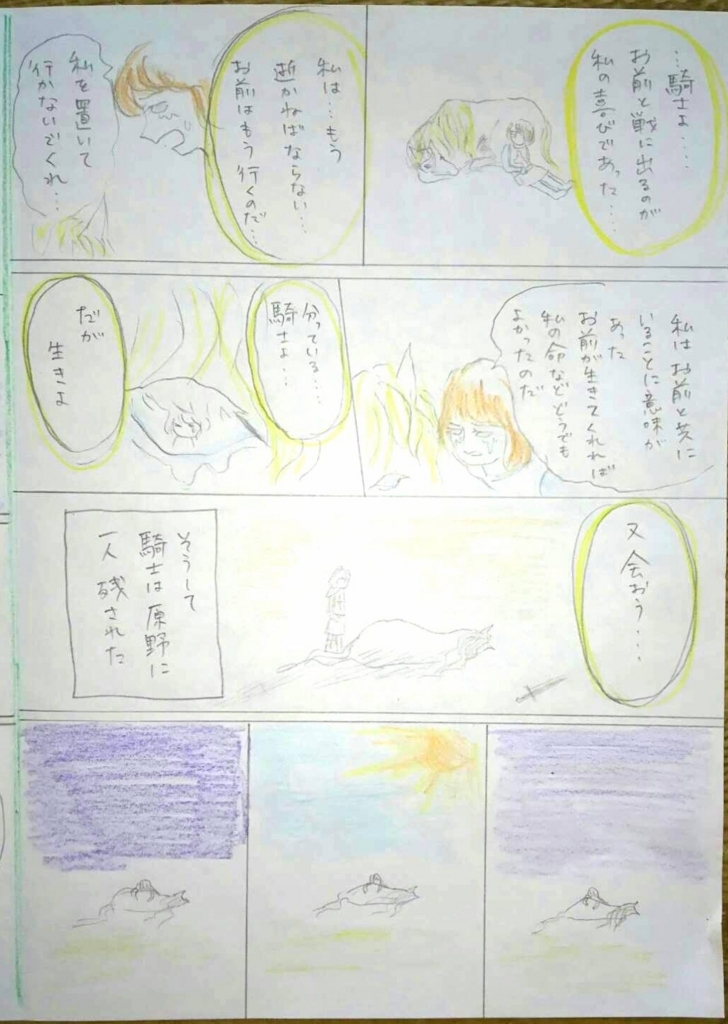 …騎士よ…
お前と戦に出るのが
私の喜びであった…
私は…もう
逝かねばならない…
お前はもう行くのだ…
私を置いて
行かないでくれ…
私はお前と共に
いることに意味が
あった
お前が生きてくれれば
私の命などどうでも
よかったのだ
分っている…
騎士よ…
だが
生きよ
又会おう…
そうして
騎士は原野に
一人残された